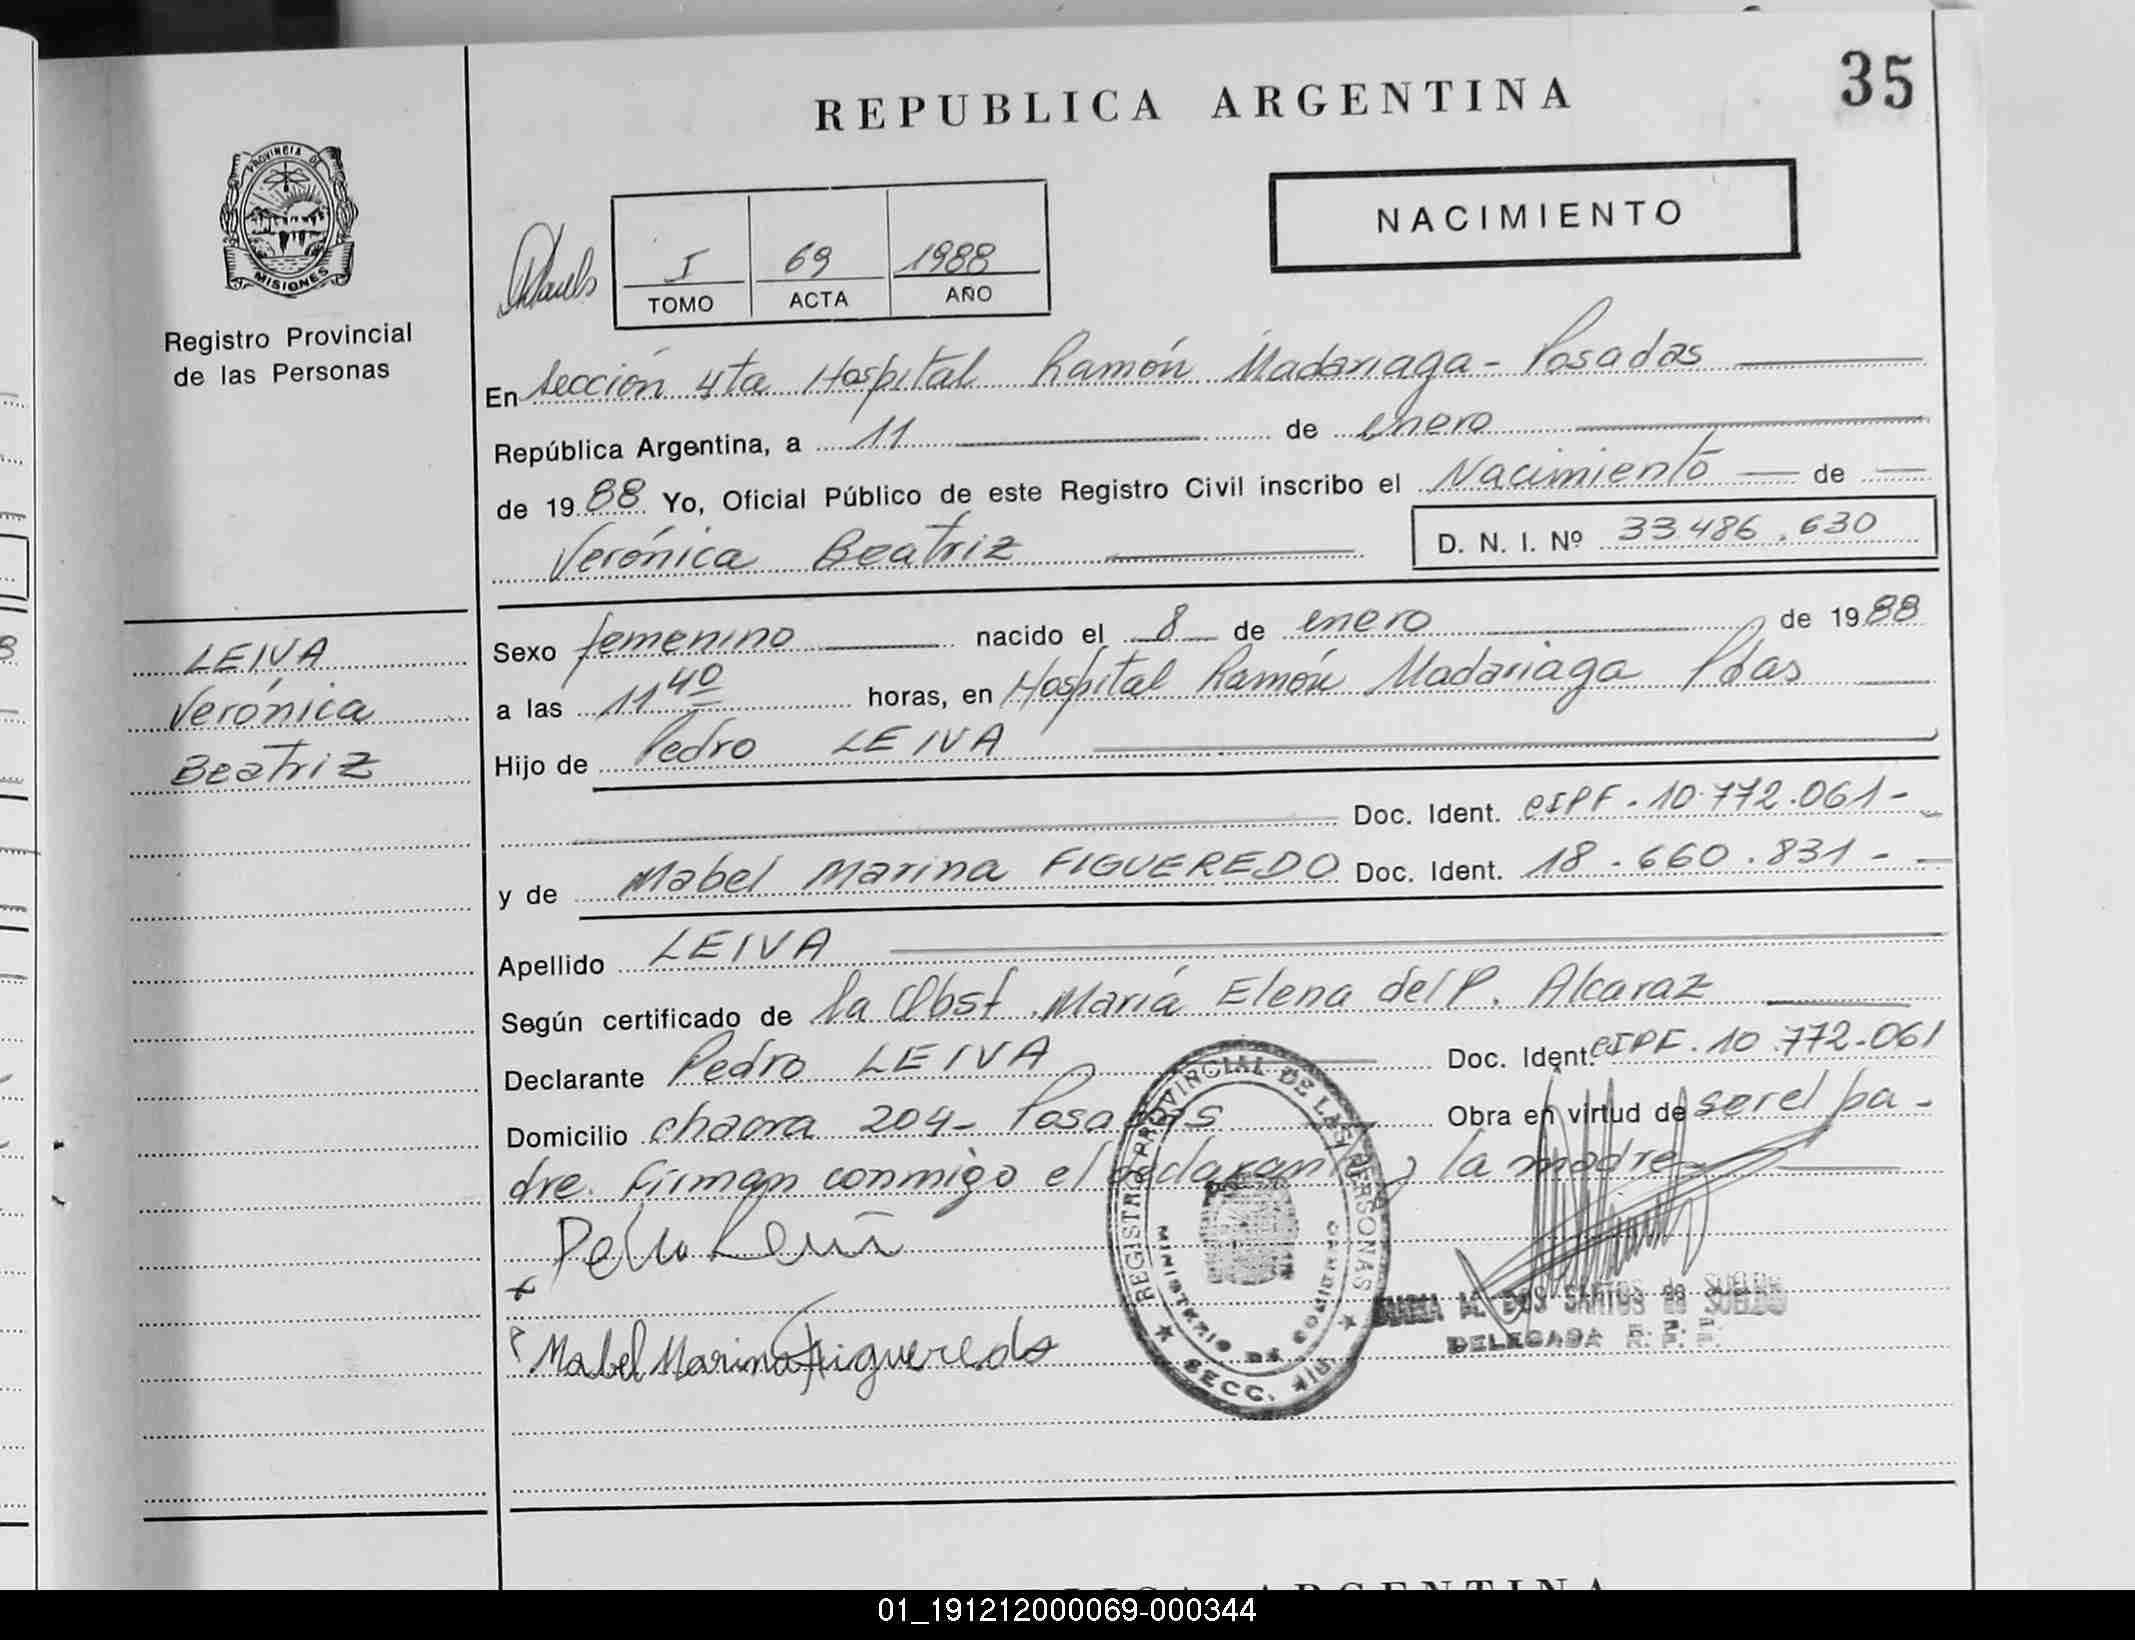 REPUBLICA ARGENTINA
35
PROVINCIA DE
MISIONES
Registro Provincial
de las Personas
NACIMIENTO
I 69 1988
TOMO ACTA AÑO
En Sección 4ta Hospital Ramón Madariaga - Posadas
República Argentina, a 11 de enero
de 1988 Yo, Oficial Público de este Registro Civil inscribo el Nacimiento de
Verónica Beatriz
D. N. I. Nº 33.486.630
LEIVA
Verónica
Beatriz
Sexo femenino nacido el 8 de enero de 1988
a las 11 40 horas, en Hospital Ramón Madariaga Pdas
Hijo de Pedro LEIVA
Doc. Ident. CIPF. 10.772.061-
y de Mabel Marina FIGUEREDO Doc. Ident. 18.660.831-
Apellido LEIVA
Según certificado de la Obst. María Elena del P. Alcaraz
Declarante Pedro LEIVA Doc. Ident. CIPF. 10.772.061
Domicilio chacra 204- Posadas Obra en virtud de ser el pa-
dre. Firman conmigo el declarante y la madre
Mabel Marina Figueredo
REGISTRO PROVINCIAL DE LAS PERSONAS
MINISTERIO DE GOBIERNO
SECC. 4ta
MARIA M. DOS SANTOS de SUELDO
DELEGADA R. P. P.
ARGENTINA
01_191212000069-000344